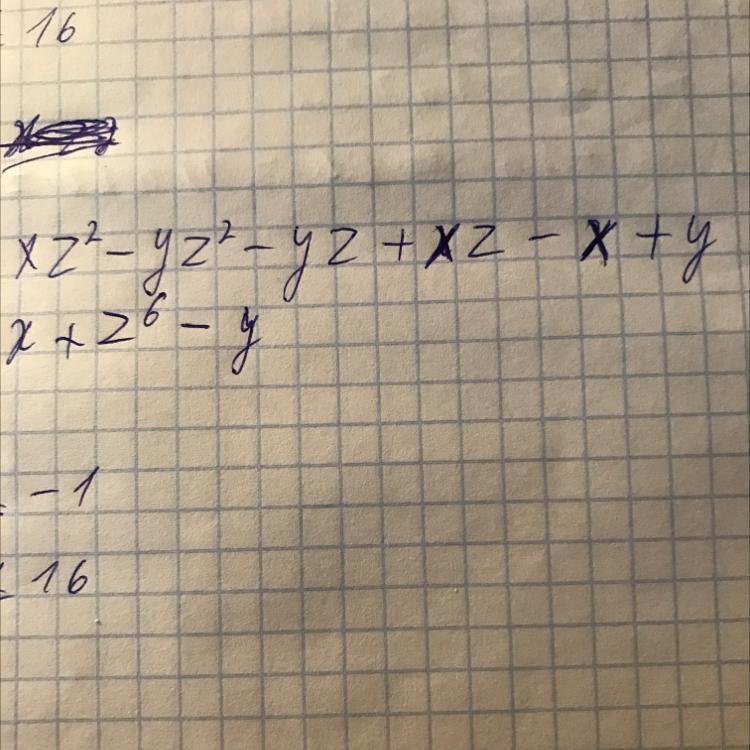 = 16
xz² - yz² - yz + xz - x + y
x + z⁶ - y
= -1
16